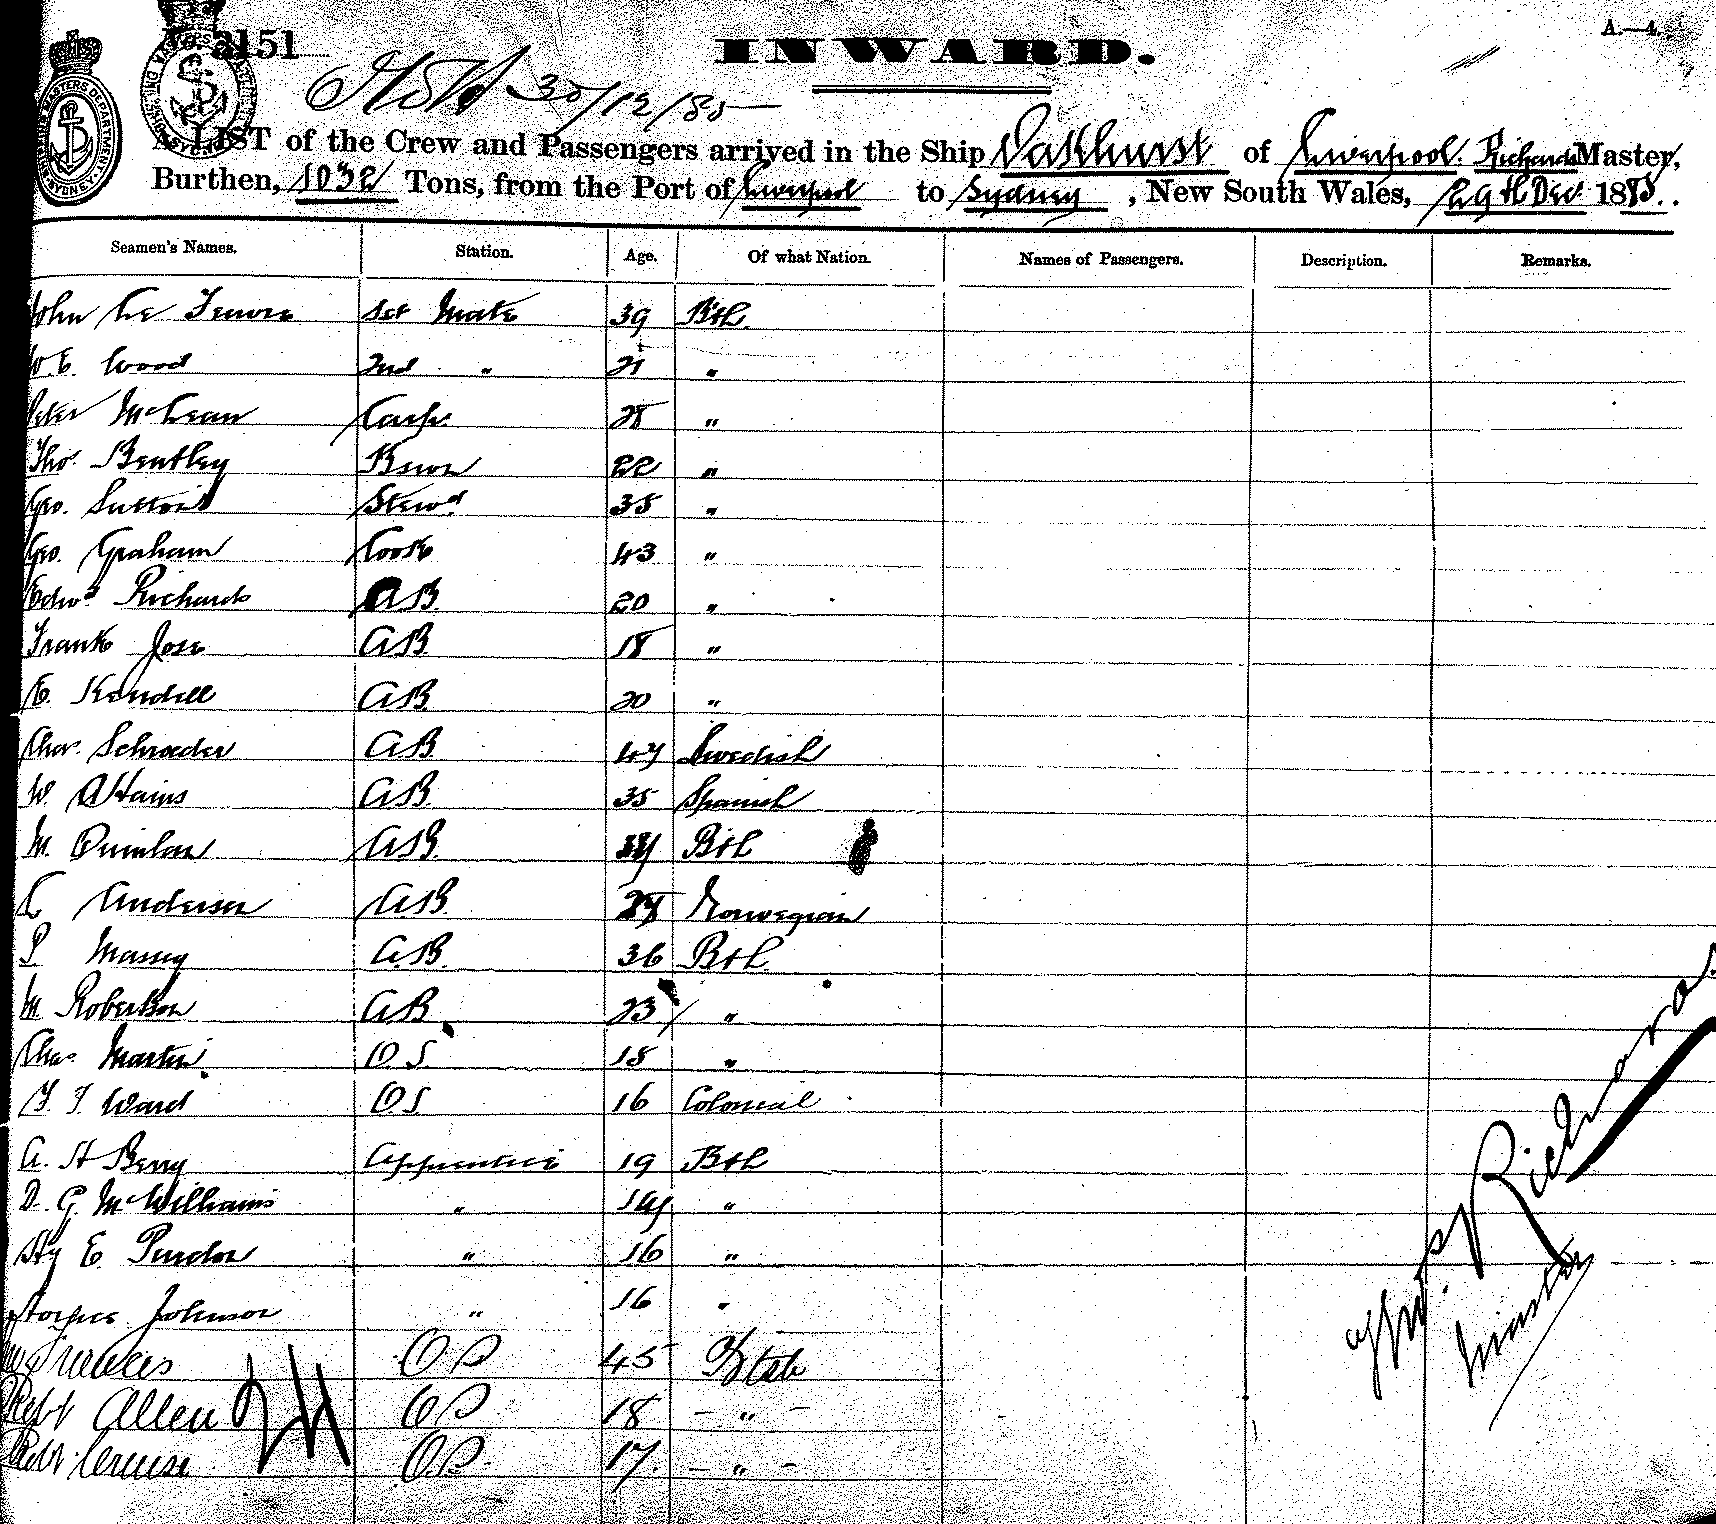 3151
INWARD.
A.—4.
30/12/85
A LIST of the Crew and Passengers arrived in the Ship Oakhurst of Liverpool. Richards Master,
Burthen, 1032 Tons, from the Port of Liverpool to Sydney, New South Wales, 29th Dec 1885.
Seamen's Names. Station. Age. Of what Nation. Names of Passengers. Description. Remarks.
John Le Feuvre 1st Mate 39 Bth.
W. E. Wood 2nd " 21 "
Peter McLean Carp. 28 "
Thos. Bentley Bswn 22 "
Geo. Sutton Stewd 35 "
Geo. Graham Cook 43 "
Edwd Richards AB 20 "
Frank Jose AB 18 "
E. Kendell AB 20 "
Chas. Schroeder AB 47 Swedish
W. Attains AB 35 Spanish
M. Quinlan AB Bth
L Anderson AB Norwegian
P Massey A.B. 36 Bth
M Robertson AB 23 "
Chas. Martin O.S. 18 "
F. J. Ward OS 16 Colonial
A. H Berry Apprentice 19 Bth
D. G. McWilliams " "
Hy E. Purdon " 16 "
Johnson " 16 "
OS 45
Robt Allen OS 18 - " -
Robt Cruise OS 17. - " -
Richards
Master